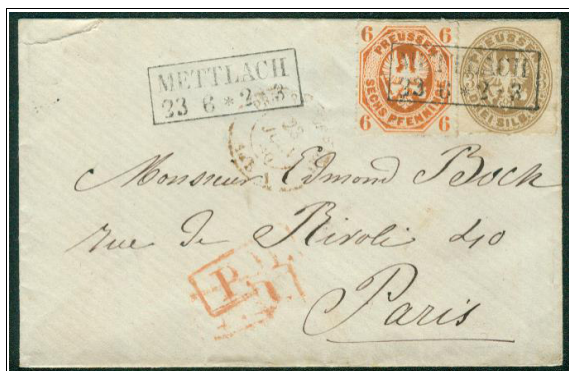 METTLACH
23 6 * 2-3
6 6
PREUSSEN
SECHS PFENNIGE
6 6
PREUSSEN
3
DREI SILB. GR.
23 6 * 2-3
Monsieur Edmond Boch
rue de Rivoli 40
P.D.
Paris